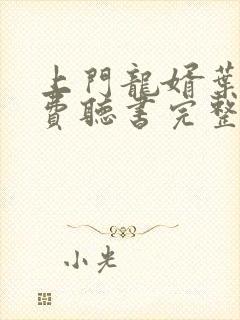 上門龍婿葉
費聽書完整
小光